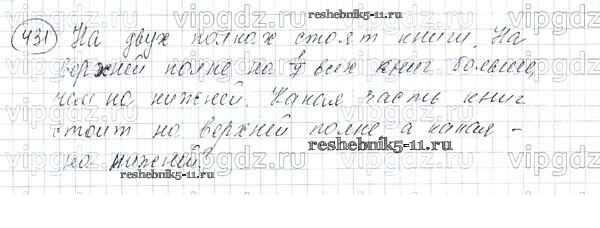 431 На двух полках стоят книги. На
верхней полке на 1/7 всех книг больше,
чем на нижней. Какая часть книг
стоит на верхней полке а какая -
на нижней?
reshebnik5-11.ru
reshebnik5-11.ru
reshebnik5-11.ru
vipgdz.ru